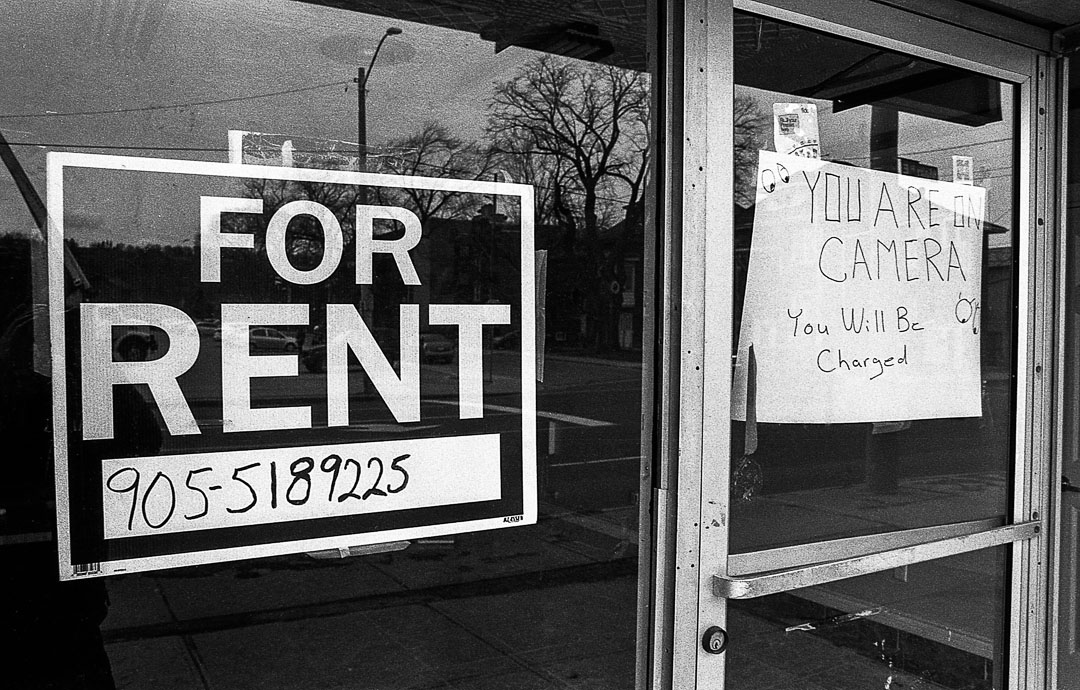 FOR
RENT
905-5189225
YOU ARE ON
CAMERA
You Will Be
Charged